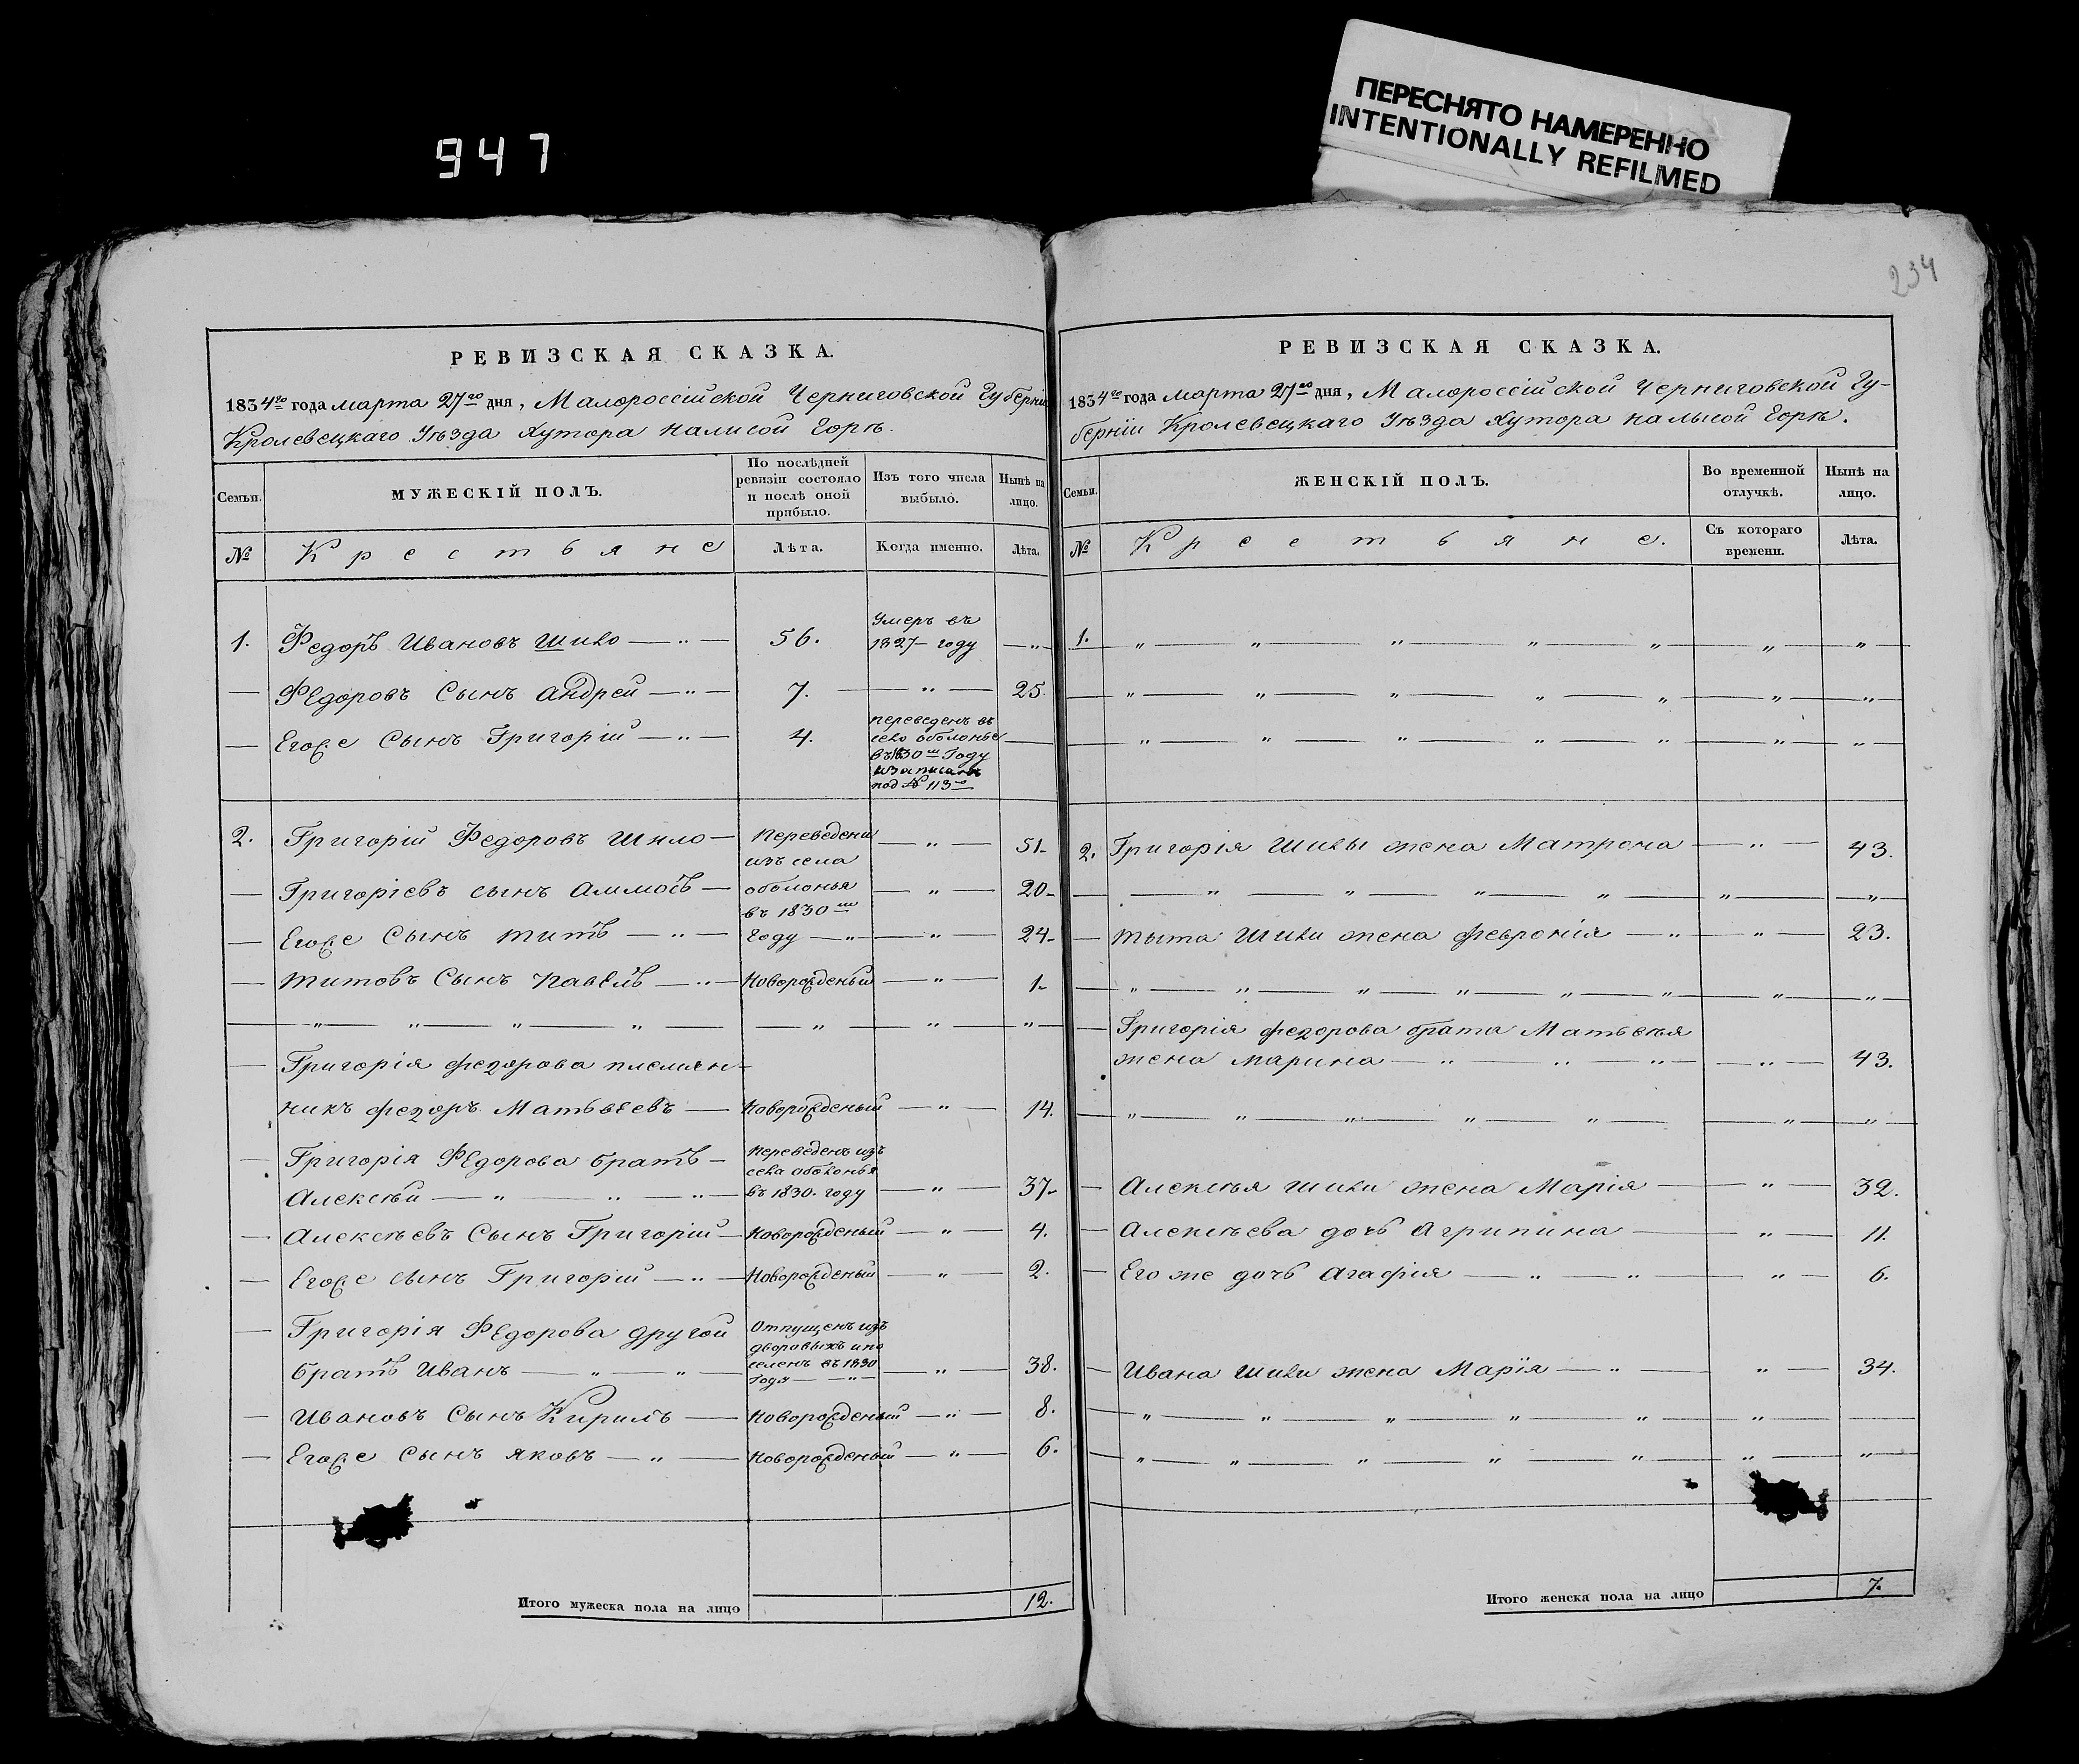 947
ПЕРЕСНЯТО НАМЕРЕННО
INTENTIONALLY REFILMED
234
РЕВИЗСКАЯ СКАЗКА.
1834го года марта 27го дня, Малороссійской Черниговской Губерніи
Кролевецкаго Уѣзда Хутора налисой Горѣ.
Семьи.
МУЖЕСКІЙ ПОЛЪ.
По послѣдней ревизіи состояло и послѣ оной прибыло.
Изъ того числа выбыло.
Нынѣ на лицо.
№ Крестьяне Лѣта. Когда именно. Лѣта.
1. Федоръ Ивановъ Шило — „ — 56. Умеръ въ 1827 году — „ —
— Федоровъ Сынъ Андрей — „ — 7. — „ — 25.
— Егоже Сынъ Григорій — „ — 4. переведенъ въ село оболонье въ 1830м Году изаписанъ под № 113м —
2. Григорій Федоровъ Шило — Переведени — „ — 51.
изъ села
— Григоріевъ сынъ Аммосъ — оболонья — „ — 20.
въ 1830м
— Егоже Сынъ титъ — „ — Году — „ — „ — 24.
— титовъ Сынъ павелъ — „ — Новорожденый — „ — 1.
— „ — „ — „ — „ — „ — „ — „ —
— Григорія федорова племян-
никъ федоръ Матвѣевъ — Новорожденый — „ — 14.
— Григорія Федорова братъ — Переведенъ изъ
села оболонья
Алексѣй — „ — „ — „ — въ 1830. году — „ — 37.
— Алексѣевъ Сынъ Григорій — Новорожденый — „ — 4.
— Егоже сынъ Григорій — „ — Новорожденый — „ — 2.
— Григорія Федорова другой Отпущенъ изъ
дворовыхъ и по
братъ Иванъ — „ — „ — селенъ въ 1830 — „ — 38.
Годя — „ —
— Ивановъ Сынъ Кирилъ — Новорожденый — „ — 8.
— Егоже Сынъ яковъ — „ — Новорожденый — „ — 6.
Итого мужеска пола на лицо 12.
РЕВИЗСКАЯ СКАЗКА.
1834го года марта 27го дня, Малороссійской Черниговской Гу-
берніи Кролевецкаго Уѣзда Хутора на лысой Горѣ.
Семьи.
ЖЕНСКІЙ ПОЛЪ.
Во временной отлучкѣ.
Нынѣ на лицо.
№ Крестьяне. Съ котораго времени. Лѣта.
1. „ — „ — „ — „ — „ — „ — „ —
— „ — „ — „ — „ — „ — „ — „
— „ — „ — „ — „ — „ — „ — „ —
2. Григорія Шилы жена Матрона — „ — 43.
— „ — „ — „ — „ — „ — „ —
— тыта Шили жена феvронія — „ — „ — 23.
— „ — „ — „ — „ — „ — „ — „ — „ —
— Григорія федорова брата Матвѣья
жена марина — „ — „ — „ — „ — 43.
— „ — „ — „ — „ — „ — „ — „ —
— Алексѣя шили жена Марія — „ — 32.
— Алексѣева дочь Агрипина — „ — 11.
— Его же дочь Агафія — „ — „ — „ — 6.
— Ивана шили жена Марія — „ — „ — 34.
— „ — „ — „ — „ — „ — „ —
— „ — „ — „ — „ — „ — „ — „ —
Итого женска пола на лицо 7.